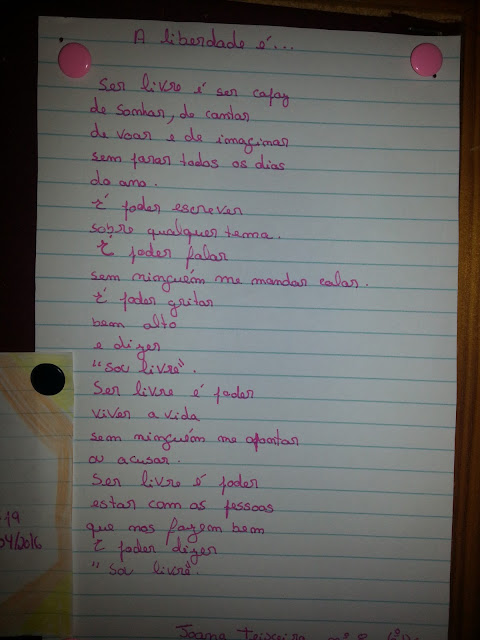 A liberdade é...
Ser livre é ser capaz
de sonhar, de cantar
de voar e de imaginar
sem parar todos os dias
do ano.
É poder escrever
sobre qualquer tema.
É poder falar
sem ninguém me mandar calar.
É poder gritar
bem alto
e dizer
"Sou livre".
Ser livre é poder
viver a vida
sem ninguém me apontar
ou acusar.
Ser livre é poder
estar com as pessoas
que nos fazem bem
É poder dizer
"Sou livre".
Joana Teixeira
19
04/2016